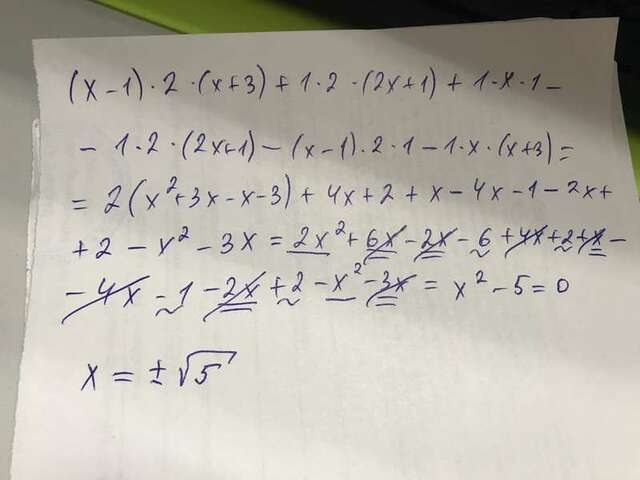 (x-1)·2·(x+3)+1·2·(2x+1)+1·x·1-
-1·2·(2x+1)-(x-1)·2·1-1·x·(x+3)=
=2(x²+3x-x-3)+4x+2+x-4x-1-2x+
+2-x²-3x=2x²+6x-2x-6+4x+2+x-
-4x-1-2x+2-x²-3x=x²-5=0
x=±√5